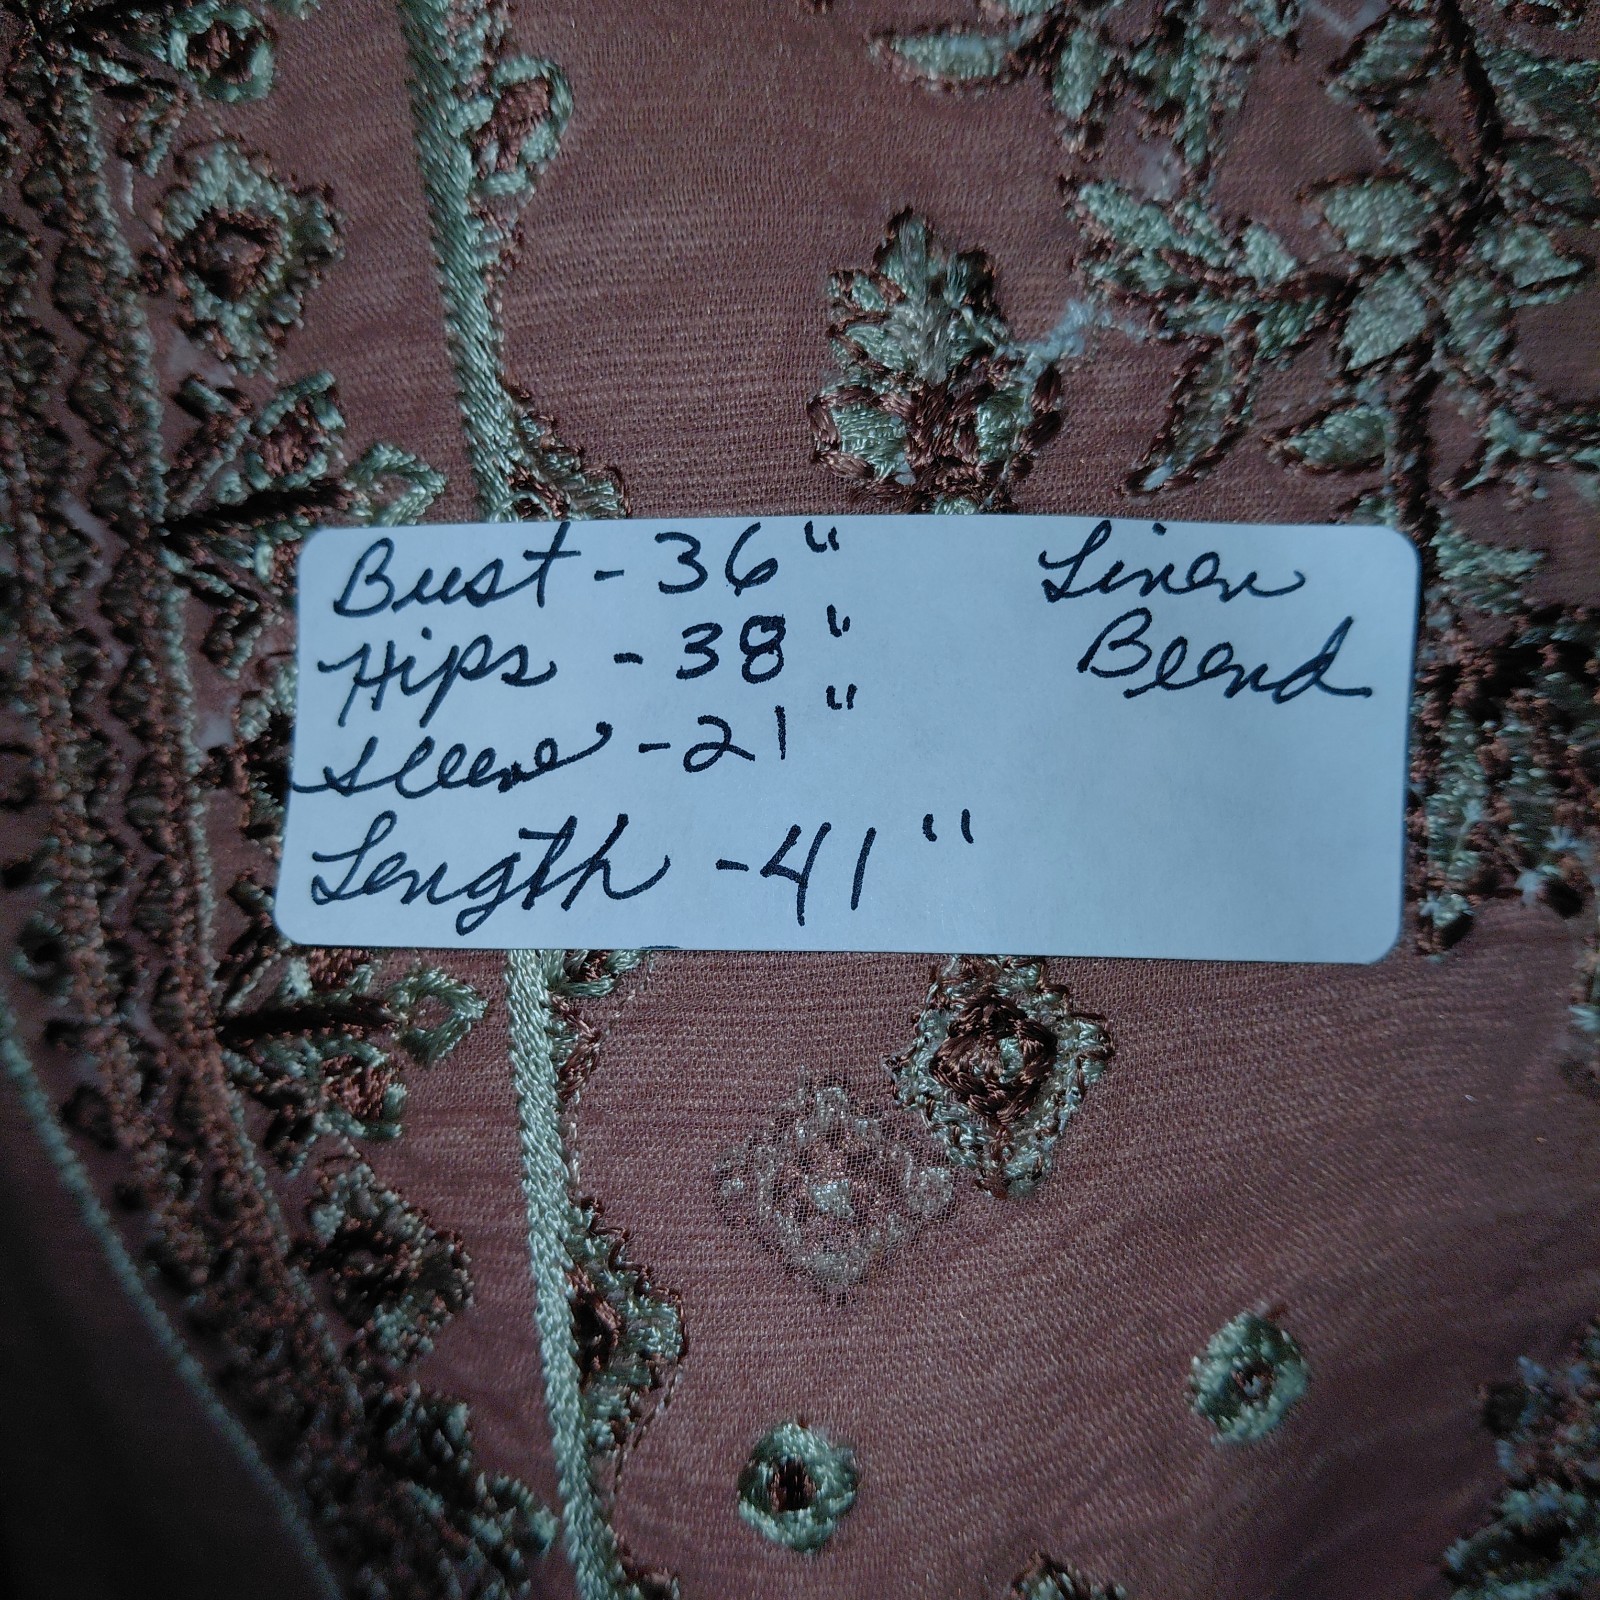 Bust - 36"
Hips - 38"
Sleeve - 21"
Length - 41"
Linen
Blend